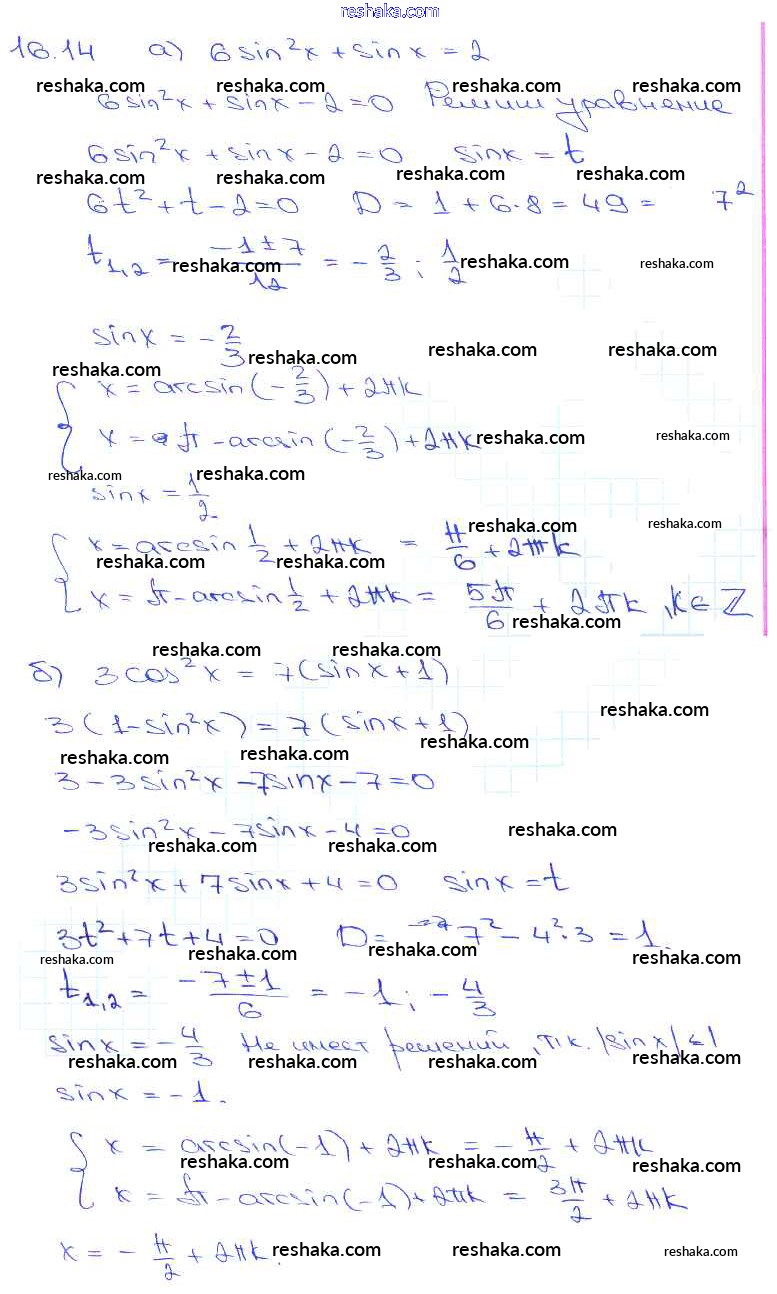 reshaka.com
16.14 а) 6sin²x + sinx = 2
reshaka.com reshaka.com reshaka.com reshaka.com
6sin²x + sinx - 2 = 0 Решим уравнение
6sin²x + sinx - 2 = 0 sinx = t
reshaka.com reshaka.com reshaka.com reshaka.com
6t² + t - 2 = 0 D = 1 + 6·8 = 49 = 7²
t₁,₂ = (-1 ± 7)/12 = -2/3 ; 1/2
reshaka.com reshaka.com reshaka.com
sinx = -2/3
reshaka.com reshaka.com reshaka.com
reshaka.com
{ x = arcsin(-2/3) + 2πk
x = π - arcsin(-2/3) + 2πk
reshaka.com reshaka.com
reshaka.com reshaka.com
sinx = 1/2
reshaka.com reshaka.com
{ x = arcsin 1/2 + 2πk = π/6 + 2πk
reshaka.com reshaka.com reshaka.com
x = π - arcsin 1/2 + 2πk = 5π/6 + 2πk, k ∈ Z
reshaka.com
reshaka.com reshaka.com
б) 3cos²x = 7(sinx + 1)
reshaka.com
3(1 - sin²x) = 7(sinx + 1)
reshaka.com reshaka.com reshaka.com
3 - 3sin²x - 7sinx - 7 = 0
-3sin²x - 7sinx - 4 = 0
reshaka.com reshaka.com reshaka.com
3sin²x + 7sinx + 4 = 0 sinx = t
3t² + 7t + 4 = 0 D = 7² - 4²·3 = 1
reshaka.com reshaka.com reshaka.com
t₁,₂ = (-7 ± 1)/6 = -1 ; -4/3
sinx = -4/3 Не имеет решений, т.к. |sinx| ≤ 1
reshaka.com reshaka.com reshaka.com reshaka.com
sinx = -1.
{ x = arcsin(-1) + 2πk = -π/2 + 2πk
reshaka.com reshaka.com reshaka.com
x = π - arcsin(-1) + 2πk = 3π/2 + 2πk
x = -π/2 + 2πk.
reshaka.com reshaka.com reshaka.com